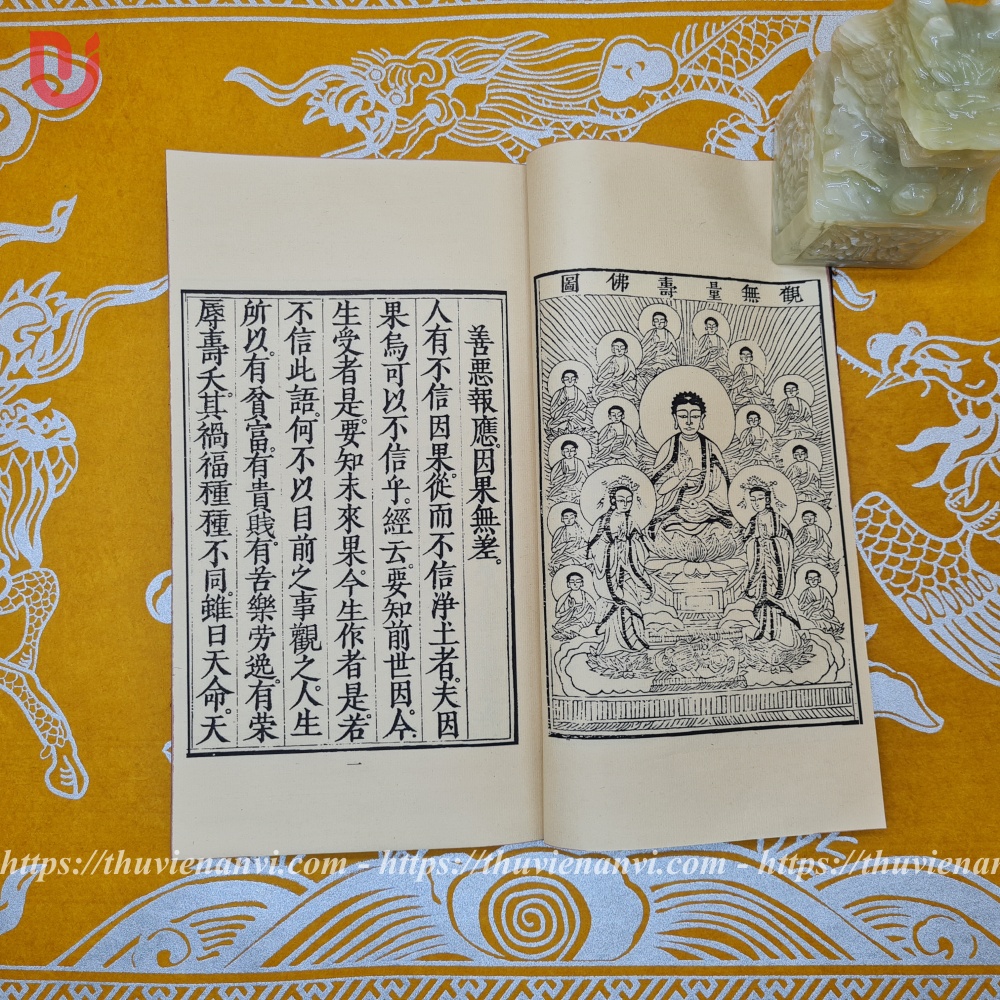 觀無量壽佛圖
善惡報應。因果無差。
人有不信因果。從而不信淨土者。夫因
果烏可以不信乎。經云。要知前世因。今
生受者是。要知未來果。今生作者是。若
不信此語。何不以目前之事觀之。人生
所以。有貧富。有貴賤。有苦樂勞逸。有荣
辱壽夭。其禍福種種不同。雖曰天命。天
一
https://thuvienanvi.com - https://thuvienanvi.com - https://thuvienanvi